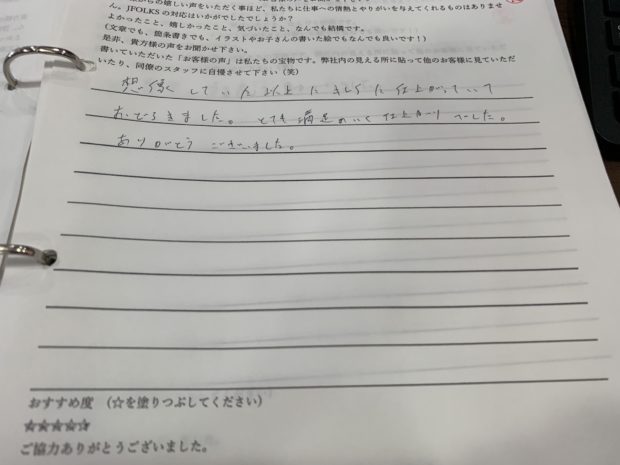 からの嬉しい声をいただく事ほど、私たちに仕事への情熱とやりがいを与えてくれるものはありませ
ん。JFOLKSの対応はいかがでしたでしょうか？
よかったこと、嬉しかったこと、気づいたこと、なんでも結構です。
（文章でも、箇条書きでも、イラストやお子さんの書いた絵でもなんでも良いです！）
是非、貴方様の声をお聞かせ下さい。
書いていただいた「お客様の声」は私たちの宝物です。弊社内の見える所に貼って他のお客様に見ていただ
いたり、同僚のスタッフに自慢させて下さい（笑）
想像していた以上にきれいな仕上がっていて
おどろきました。とても満足のいく仕上がりでした。
ありがとうございました。
おすすめ度 （☆を塗りつぶしてください）
★★★★☆
ご協力ありがとうございました。